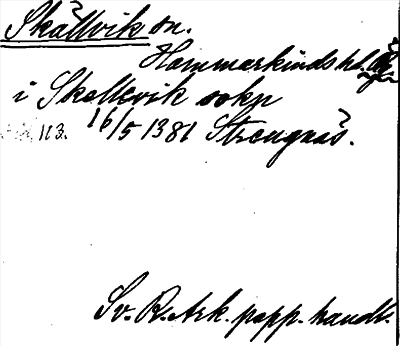 Skällvik sn.
Hammarkinds hd.
i Skellevik sokn
113. 16/5 1381 Strengnäs.
Sv. R. Ark. papp. handl.